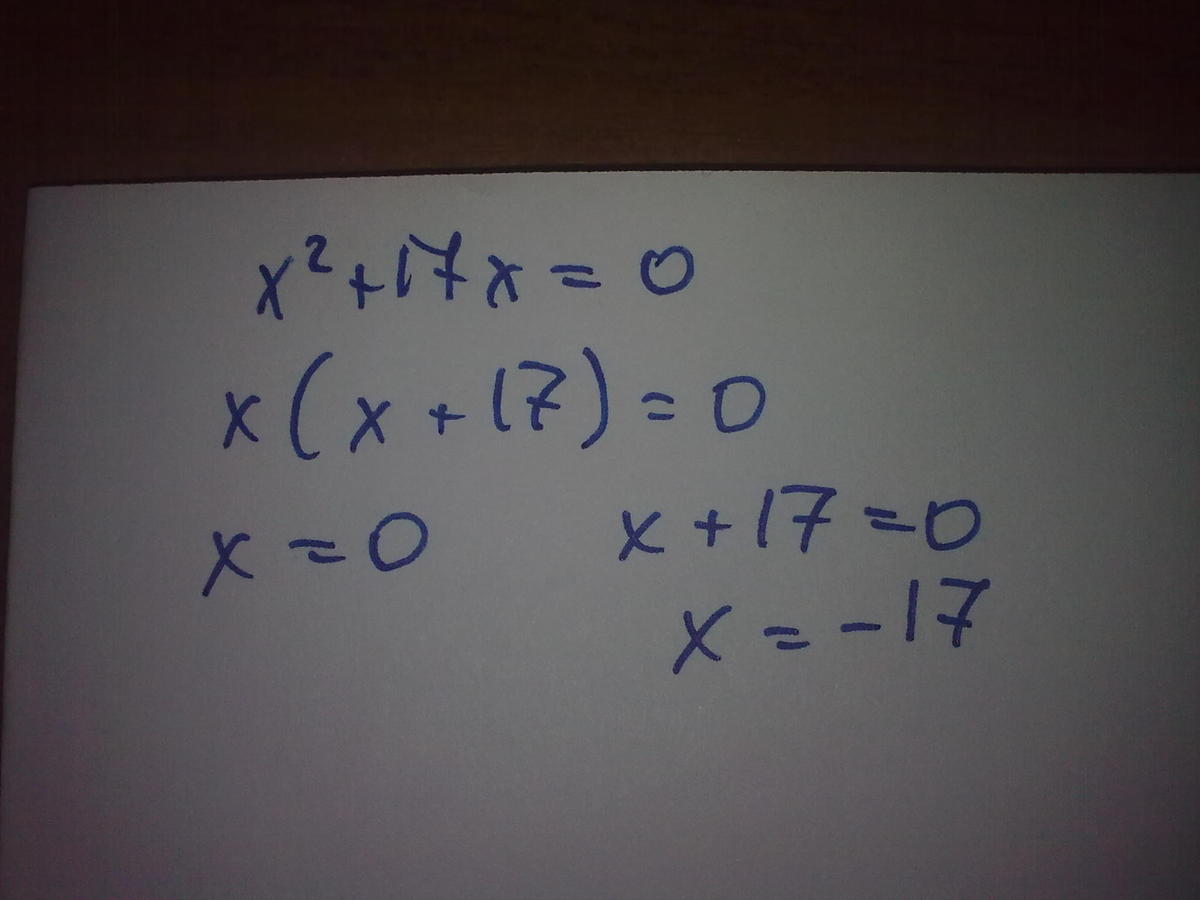 x²+17x=0
x(x+17)=0
x=0 x+17=0
x=-17